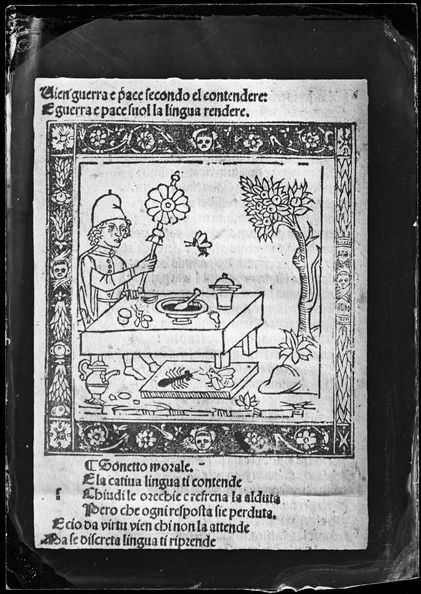 Uien guerra e pace secondo el contendere:
E guerra e pace suol la lingua rendere.
C Sonetto morale.
E la catiua lingua ti contende
Chiudi le orechie e refrena la alduta
Pero che ogni resposta sie perduta.
E cio da virtu vien chi non la attende
Ma se discreta lingua ti riprende